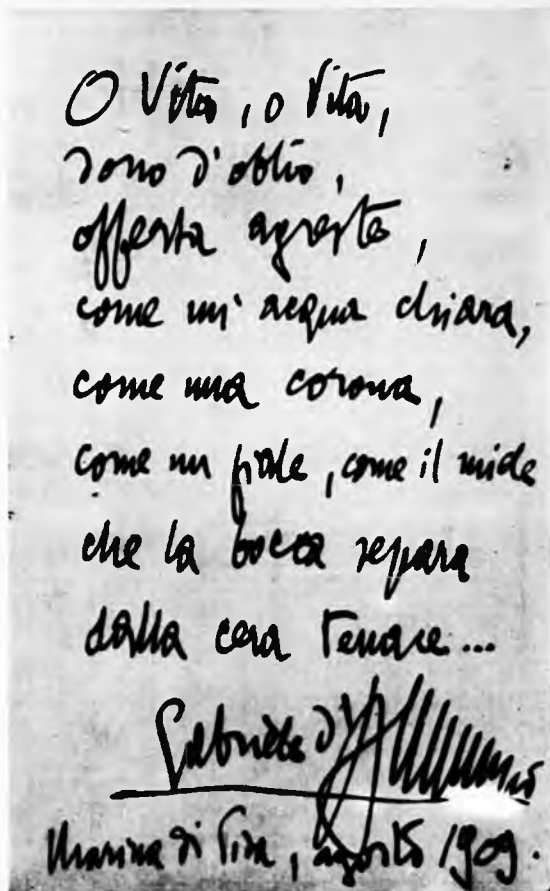 O Vita, o Vita,
dono d'oblìo,
offerta agreste,
come un'acqua chiara,
come una corona,
come un fiale, come il miele
che la bocca separa
dalla cera tenace...
Gabriele d'Annunzio
Marina di Pisa, agosto 1909.